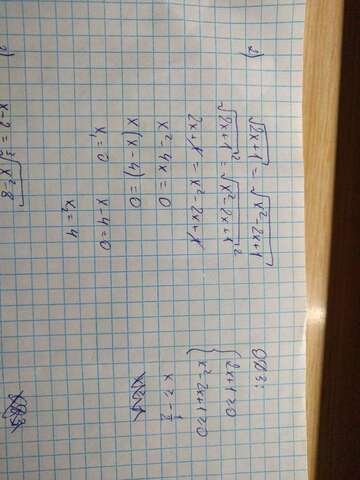 2)
√2x+1 = √x²-2x+1
√2x+1² = √x²-2x+1²
2x+1 = x²-2x+1
x²-4x=0
x(x-4)=0
x₁=0 x-4=0
x₂=4
ОДЗ:
{2x+1≥0
x²-2x+1≥0
x ≥ -1/2
x-2 = ³√x²-8